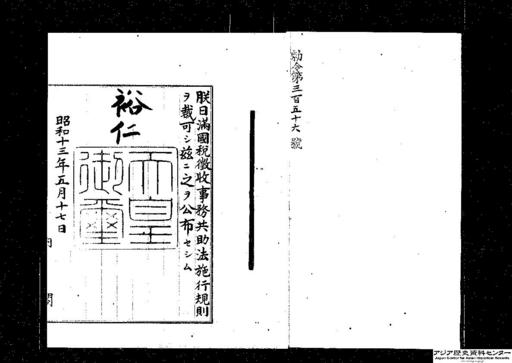 勅令第三百五十六號
朕日滿國税徴收事務共助法施行規則
ヲ裁可シ茲ニ之ヲ公布セシム
裕仁
天皇御璽
昭和十三年五月十七日
内閣
アジア歴史資料センター
Japan Center for Asian Historical Records